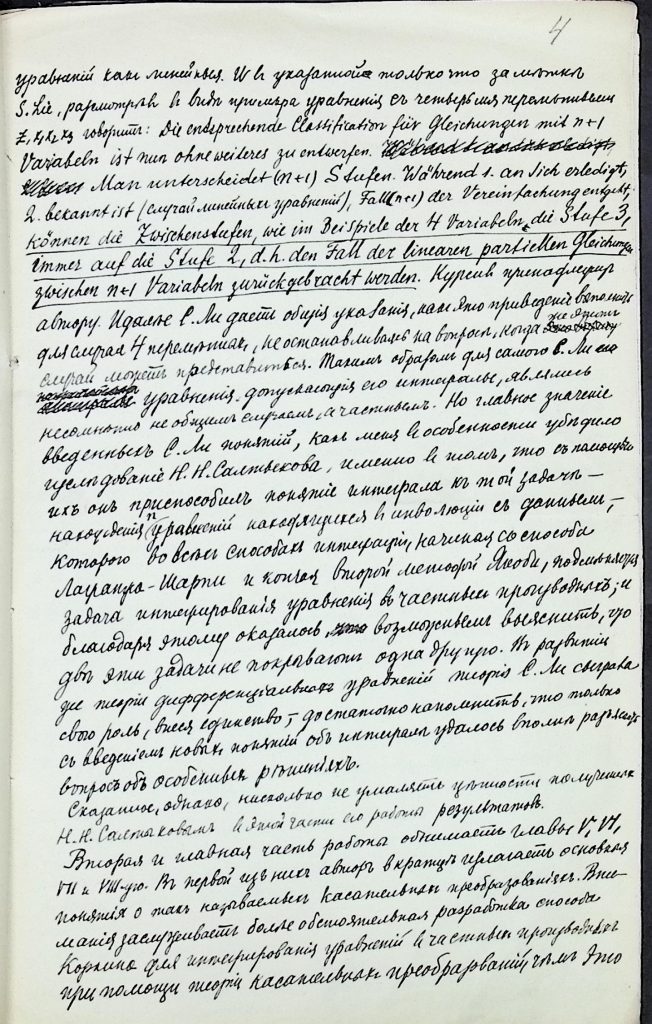 4
уравненій какъ линейныя. И въ указанной только что замѣткѣ
S. Lie, разсмотрѣвъ въ видѣ примѣра уравненія съ четырьмя перемѣнными
z, x₁ x₂ x₃ говоритъ: Die entsprechende Classification für Gleichungen mit n+1
Variabeln ist nun ohne weiteres zu entwerfen.
Man unterscheidet (n+1) Stufen. Während 1. an sich erledigt,
2. bekannt ist (случай линейныхъ уравненій), Fall (n+1) der Vereinfachung entgeht,
können die Zwischenstufen, wie im Beispiele der 4 Variabeln die Stufe 3,
immer auf die Stufe 2, d.h. den Fall der linearen partiellen Gleichungen
zwischen n+1 Variabeln zurückgebracht werden. Курсивъ принадлежитъ
автору. И далѣе С. Ли даетъ общія указанія, какъ это приведеніе выполнить
для случая 4 перемѣнныхъ, не останавливаясь на вопросѣ, когда же этотъ
случай можетъ представиться. Такимъ образомъ для самого С. Ли
уравненія, допускающія его интегралы, являлись
несомнѣнно не общимъ случаемъ, а частнымъ. Но главное значеніе
введенныхъ С. Ли понятій, какъ меня въ особенности убѣдило
изслѣдованіе Н. Н. Салтыкова, именно въ томъ, что съ помощью
ихъ онъ приспособилъ понятіе интеграла къ той задачѣ —
нахожденія уравненій находящихся въ инволюціи съ даннымъ, —
которою во всѣхъ способахъ интеграціи, начиная со способа
Лагранжа-Шарпи и кончая второй методой Якоби, подмѣняется
задача интегрированія уравненія въ частныхъ производныхъ; и
благодаря этому оказалось возможнымъ выяснить, что
двѣ эти задачи не покрываютъ одна другую. Въ развитіи
же теоріи дифференціальныхъ уравненій теорія С. Ли сыграла
свою роль, внеся единство, — достаточно напомнить, что только
съ введеніемъ новыхъ понятій объ интегралѣ удалось вполнѣ разъяснить
вопросъ объ особенныхъ рѣшеніяхъ.
Сказанное, однако, нисколько не умаляетъ цѣнности полученныхъ
Н. Н. Салтыковымъ въ этой части его работы результатовъ.
Вторая и главная часть работы обнимаетъ главы V, VI,
VII и VIII-ую. Въ первой изъ нихъ авторъ вкратцѣ излагаетъ основныя
понятія о такъ называемыхъ касательныхъ преобразованіяхъ. Вни-
манія заслуживаетъ болѣе обстоятельная разработка способа
Коркина для интегрированія уравненій въ частныхъ производныхъ
при помощи теоріи касательныхъ преобразованій, чѣмъ это